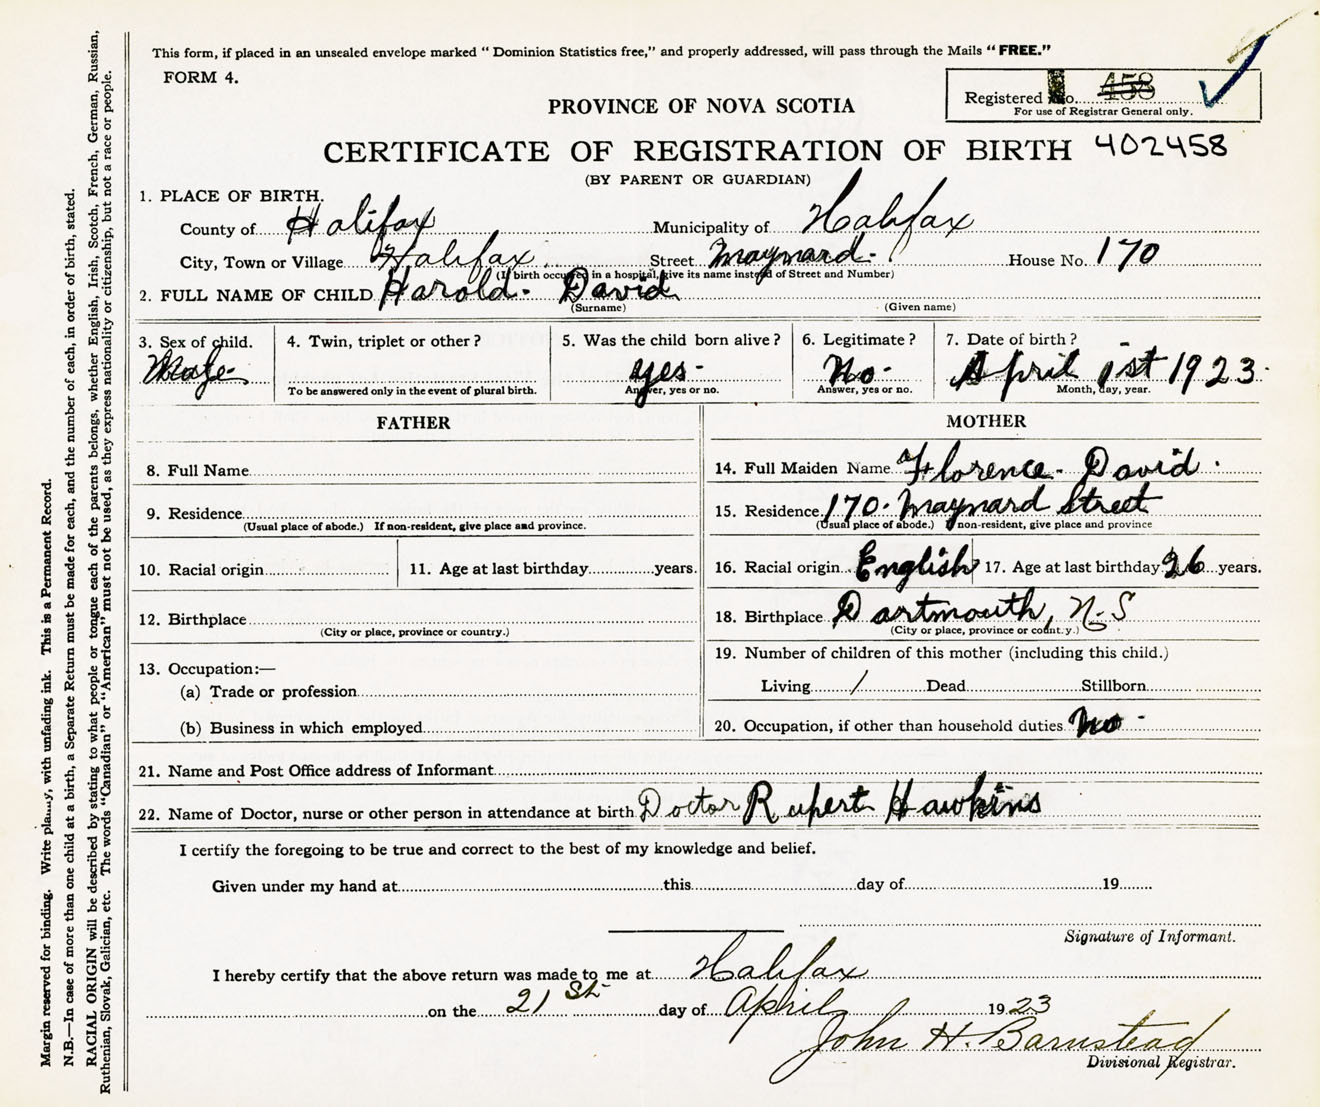 This form, if placed in an unsealed envelope marked "Dominion Statistics free," and properly addressed, will pass through the Mails "FREE."
FORM 4.
Registered No. 458
For use of Registrar General only.
PROVINCE OF NOVA SCOTIA
CERTIFICATE OF REGISTRATION OF BIRTH 402458
(BY PARENT OR GUARDIAN)
1. PLACE OF BIRTH.
County of Halifax Municipality of Halifax
City, Town or Village Halifax Street Maynard. House No. 170
(If birth occurred in a hospital, give its name instead of Street and Number)
2. FULL NAME OF CHILD Harold. David
(Surname) (Given name)
3. Sex of child. 4. Twin, triplet or other? 5. Was the child born alive? 6. Legitimate? 7. Date of birth?
Male yes. No. April 1st 1923.
To be answered only in the event of plural birth. Answer, yes or no. Answer, yes or no. Month, day, year.
FATHER MOTHER
8. Full Name 14. Full Maiden Name Florence. David.
9. Residence 15. Residence 170. Maynard Street
(Usual place of abode.) If non-resident, give place and province. (Usual place of abode.) If non-resident, give place and province
10. Racial origin 11. Age at last birthday years. 16. Racial origin English 17. Age at last birthday 26 years.
12. Birthplace 18. Birthplace Dartmouth, N.S
(City or place, province or country.) (City or place, province or country.)
19. Number of children of this mother (including this child.)
13. Occupation:—
(a) Trade or profession Living 1 Dead Stillborn
(b) Business in which employed 20. Occupation, if other than household duties No.
21. Name and Post Office address of Informant
22. Name of Doctor, nurse or other person in attendance at birth Doctor Rupert Hawkins
I certify the foregoing to be true and correct to the best of my knowledge and belief.
Given under my hand at this day of 19
Signature of Informant.
I hereby certify that the above return was made to me at Halifax
on the 21st day of April 1923
John H. Barnstead
Divisional Registrar.
Margin reserved for binding. Write plainly, with unfading ink. This is a Permanent Record.
N.B.—In case of more than one child at a birth, a Separate Return must be made for each, and the number of each, in order of birth, stated.
RACIAL ORIGIN will be described by stating to what people or tongue each of the parents belongs, whether English, Irish, Scotch, French, German, Russian,
Ruthenian, Slovak, Galician, etc. The words "Canadian" or "American" must not be used, as they express nationality or citizenship, but not a race or people.